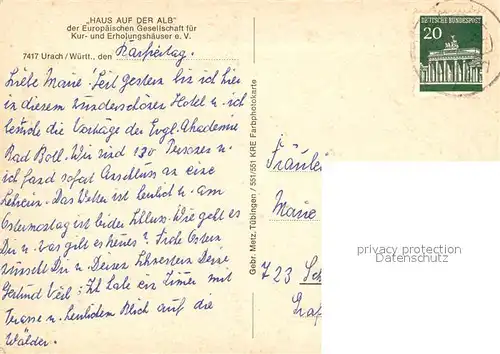 „HAUS AUF DER ALB"
der Europäischen Gesellschaft für
Kur- und Erholungshäuser e. V.
7417 Urach / Württ., den Karfreitag.
Liebe Marie! Seit gestern bin ich hier
in diesem wunderschönen Hotel u. ich
besuche die Vorträge der Evgl. Akademie
Bad Boll. Wir sind 130 Personen u.
ich fand sofort Anschluss an eine
Lehrerin. Das Wetter ist herrlich u. am
Ostermontag ist leider Schluss. Wie geht es
Dir u. was gibt es neues? Frohe Ostern
wünscht Dir u. Deinen Schwestern Deine
Gertrud Veil. Ich habe ein Zimmer mit
Terrasse u. herrlichem Blick auf die
Wälder.
Gebr. Metz, Tübingen / 551/551 KRE Farbphotokarte
DEUTSCHE BUNDESPOST
20
Fräulein
Marie
723 Sch
Graf
privacy protection
Datenschutz